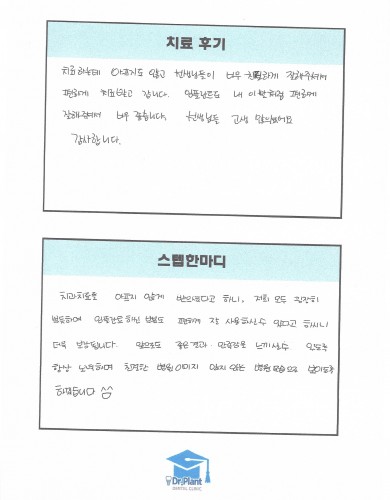 치료 후기
치료하는데 아프지도 않고 선생님들이 너무 친절하게 잘해주셔서
편하게 치료받고 갑니다. 임플란트도 내 이빨처럼 편하게
잘해주셔서 너무 좋습니다. 선생님들 고생 많으셨어요
감사합니다.
스텝한마디
치과치료를 아프지 않게 받으셨다고 하니, 저희 모두 굉장히
뿌듯하며 임플란트하신 부분도 편하게 잘 사용하실수 있다고 하시니
더욱 보람됩니다. 앞으로도 좋은결과 만족감을 느끼실수 있도록
항상 노력하며 친절한 병원이미지 잃지 않는 병원 모습으로
하겠습니다 ^^
Dr.Plant
DENTAL CLINIC